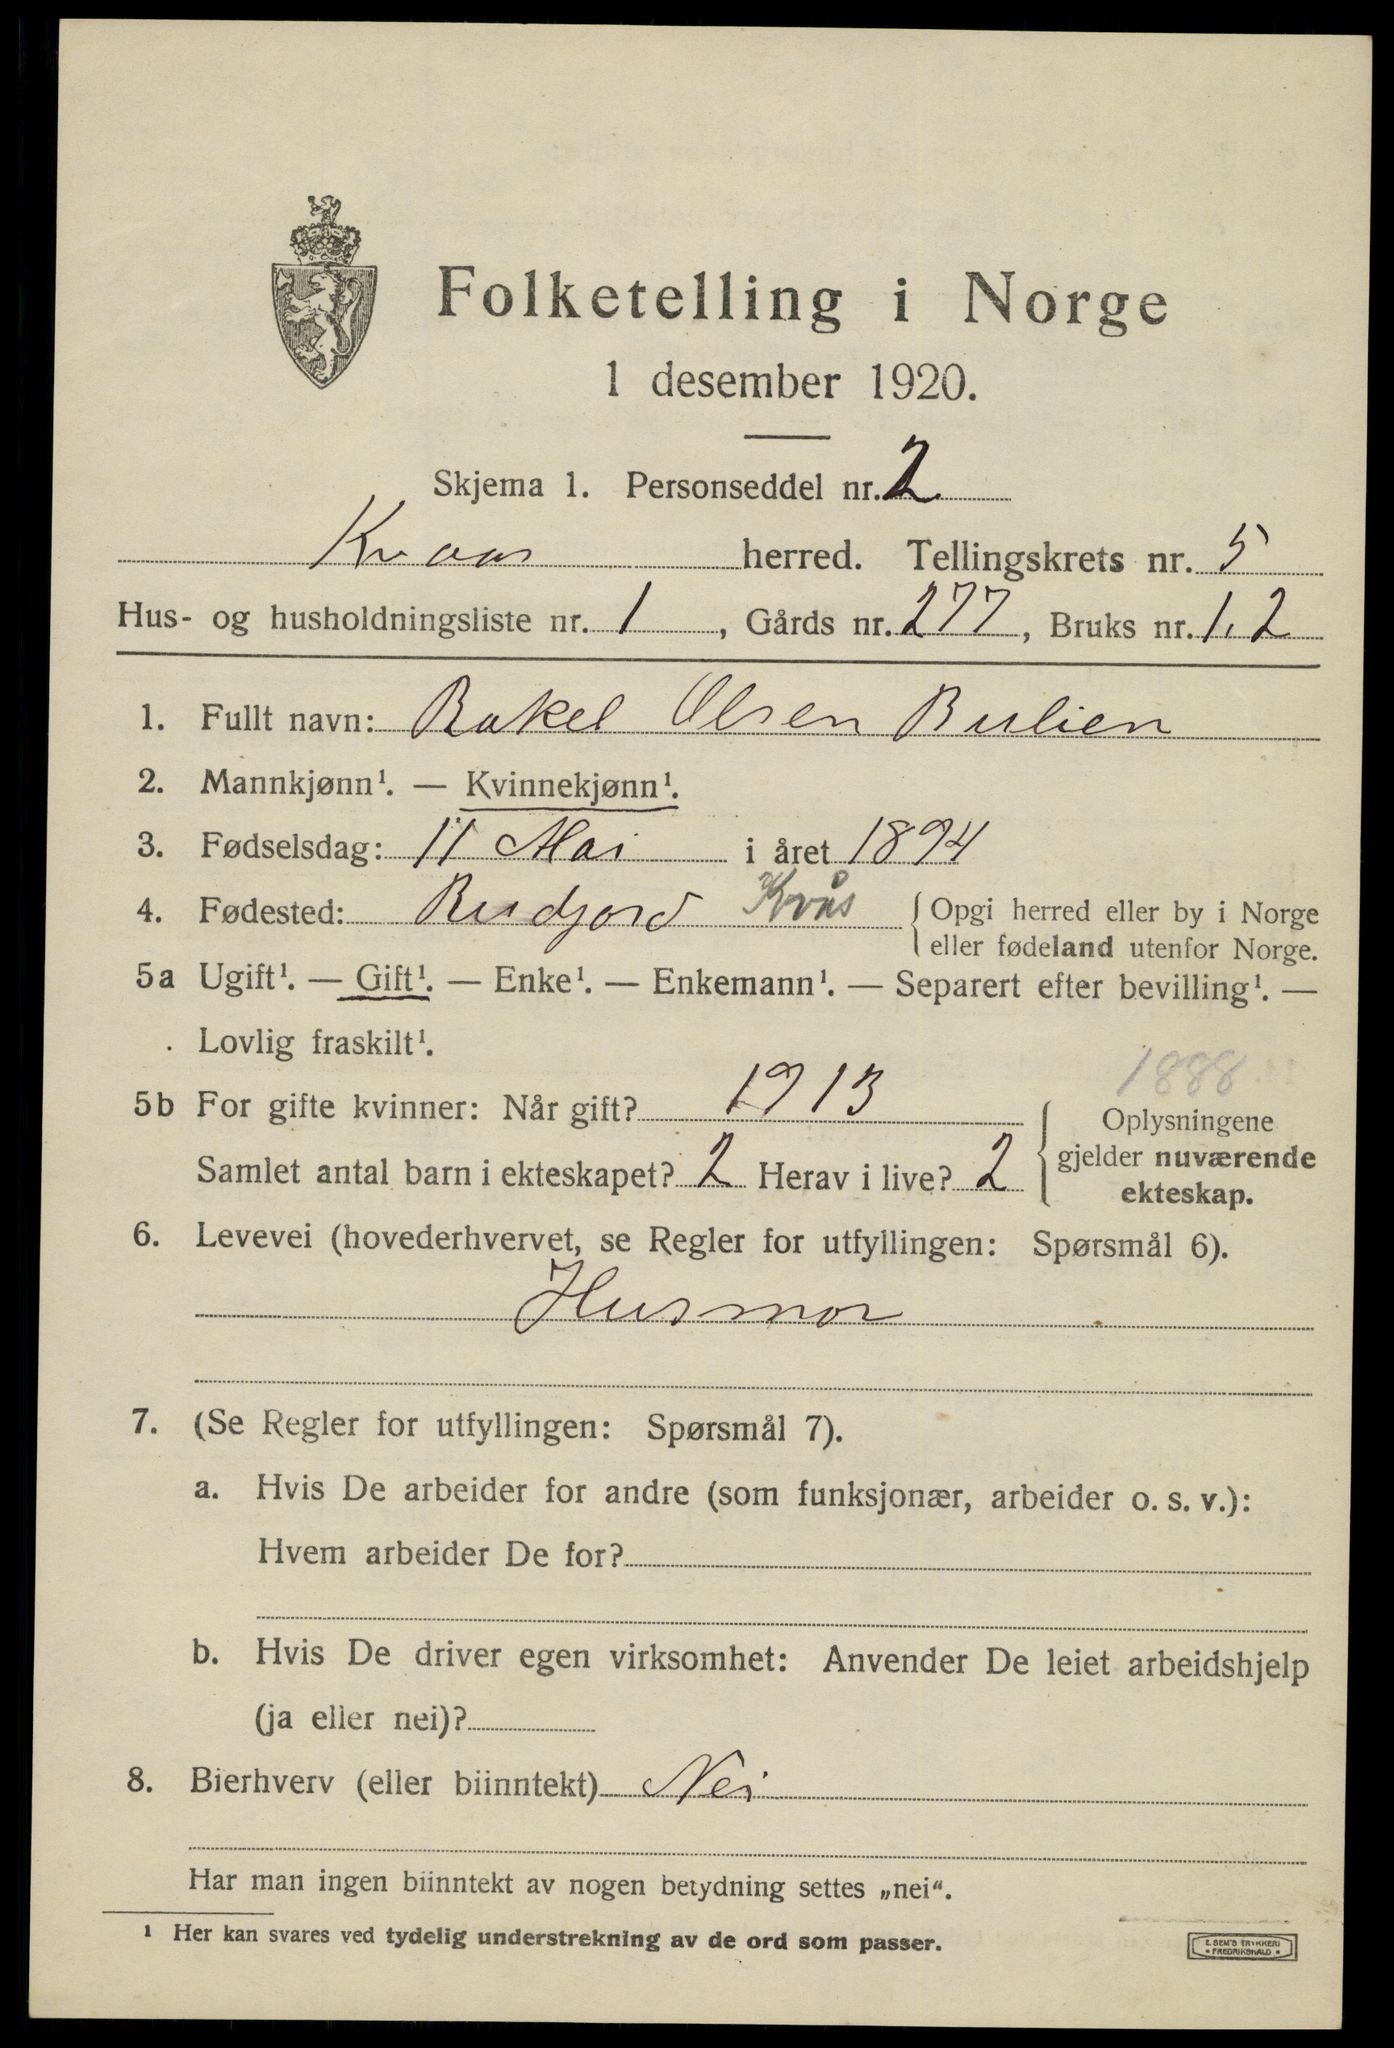 Folketelling i Norge
1 desember 1920.
Skjema 1. Personseddel nr. 2
Kvaas herred. Tellingskrets nr. 5
Hus- og husholdningsliste nr. 1, Gårds nr. 277, Bruks nr. 1,2
1. Fullt navn: Rakel Olsen Birlien
2. Mannkjønn¹. — Kvinnekjønn¹.
3. Fødselsdag: 11 Mai i året 1894
4. Fødested: Rudjord Kvås { Opgi herred eller by i Norge
eller fødeland utenfor Norge.
5a Ugift¹. — Gift¹. — Enke¹. — Enkemann¹. — Separert efter bevilling¹. —
Lovlig fraskilt¹.
1888
5b For gifte kvinner: Når gift? 1913 Oplysningene
Samlet antal barn i ekteskapet? 2 Herav i live? 2 gjelder nuværende
ekteskap.
6. Levevei (hovederhvervet, se Regler for utfyllingen: Spørsmål 6).
Husmor
7. (Se Regler for utfyllingen: Spørsmål 7).
a. Hvis De arbeider for andre (som funksjonær, arbeider o. s. v.):
Hvem arbeider De for?
b. Hvis De driver egen virksomhet: Anvender De leiet arbeidshjelp
(ja eller nei)?
8. Bierhverv (eller biinntekt) Nei
Har man ingen biinntekt av nogen betydning settes „nei“.
¹ Her kan svares ved tydelig understrekning av de ord som passer.
E. SEM'S TRYKKERI
• FREDRIKSHALD •